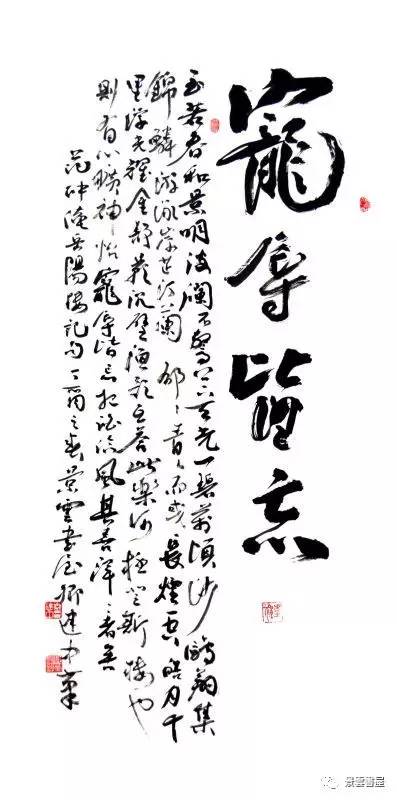 寵辱皆忘
至若春和景明波瀾不驚上下天光一碧萬頃沙鷗翔集
錦鱗游泳岸芷汀蘭郁々青々而或長煙一空皓月千
里浮光耀金靜影沉璧漁歌互答此樂何極登斯樓也
則有心曠神怡寵辱皆忘把酒臨風其喜洋々者矣
范仲淹岳陽樓記句丁酉之春景雲書屋建中
景雲書屋